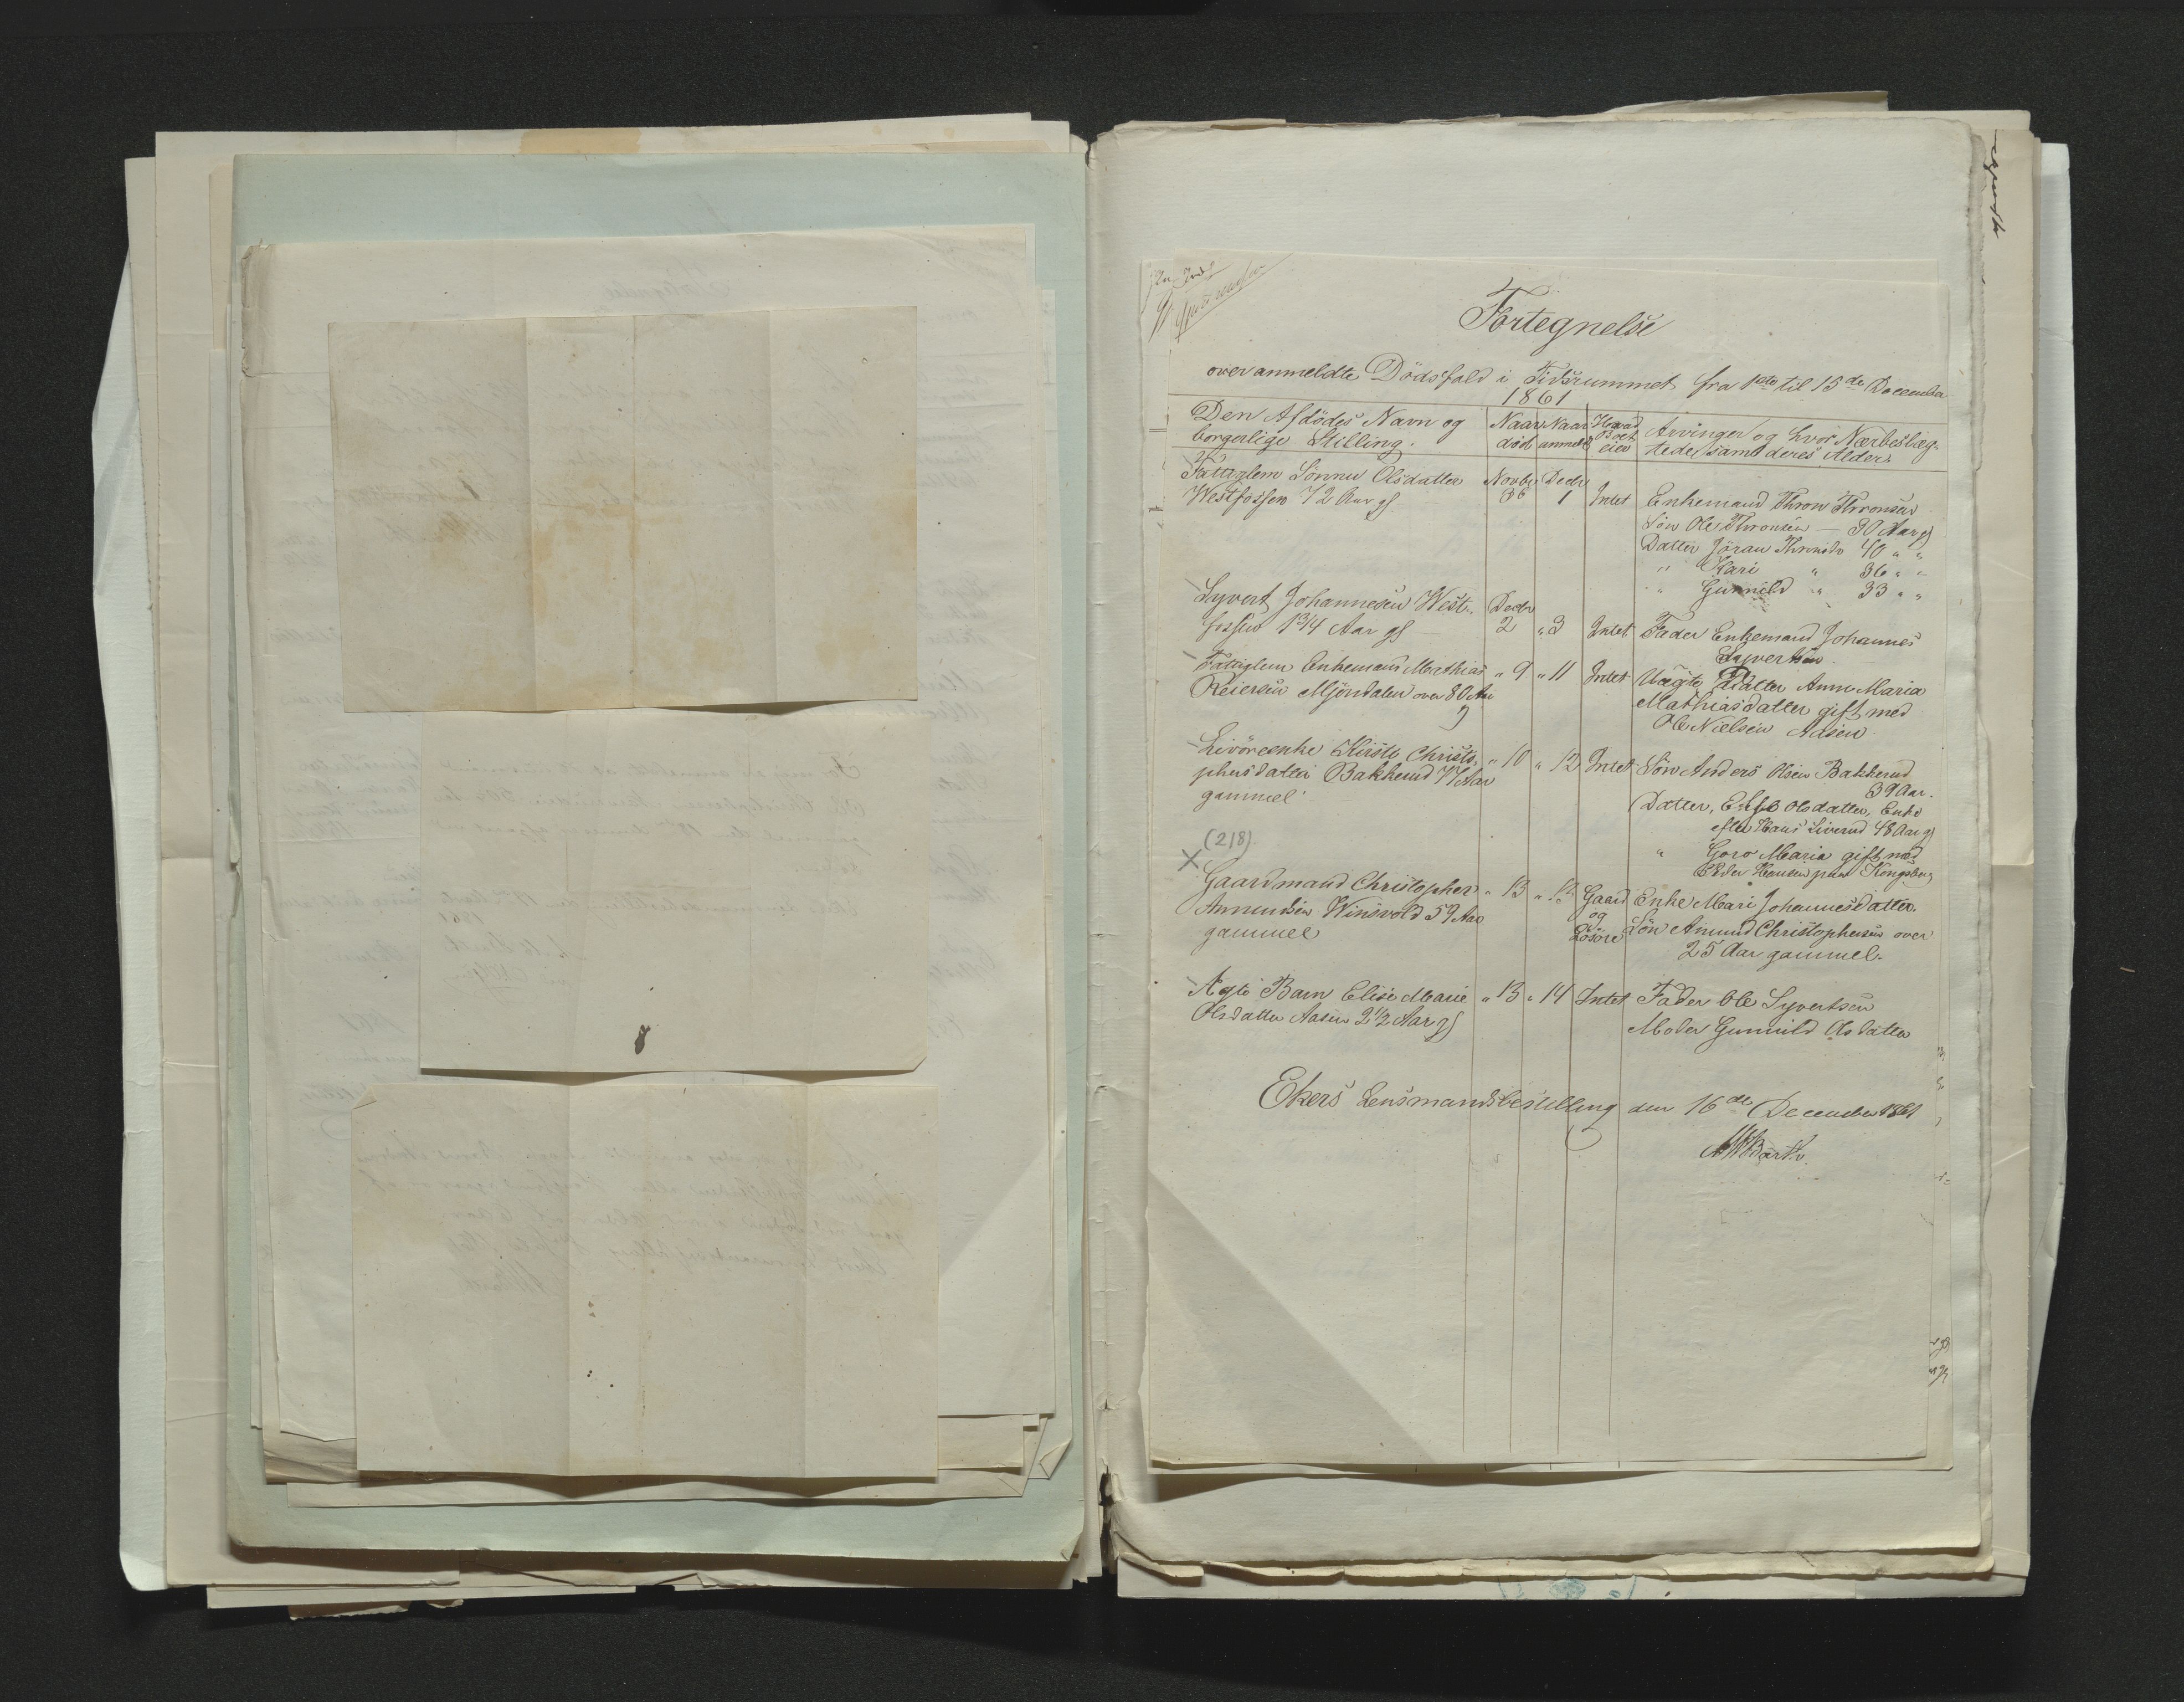 Fortegnelse
over anmeldte Dödsfald i Tidsrummet fra 1ste til 15de December
1861
Den Afdödes Navn og borgerlige Stilling.
Naar död
Naar anmeldt
Hvad Boet eier
Arvinger og hvor Nærbeslægtede, samt deres Alder.
Fattiglem Olsdatter Novbr Decbr
Westfossen 72 Aar gl. 1 Intet Enkemand Thron Thronsen
Sön Ole Thronsen — 30 Aar gl
Datter Jöran Thronsdr 40 " "
" Kari " 36 " "
" Gunnild " 33 " "
Syvert Johannesen West- Decbr
fossen 1 3/4 Aar gl — 2 " 3 Intet Fader Enkemand Johannes
Syvertsen
Fattiglem Enkemand Mathias " 9 " 11 Intet Uægte Datter Anne Maria
Reiersen Mjöndalen over 80 Aar Mathiasdatter gift med
gl Ole Nielsen Aasen
Livöreenke Kirsti Christo- " 10 " 12 Intet Sön Anders Olsen Bakkerud
phersdatter Bakkerud 77 Aar 39 Aar.
gammel Datter, Olsdatter, Enke
efter Hans Liverud 48 Aar gl
(218) " Goro Maria gift med
X Peder Hansen paa Kongsberg
Gaardmand Christopher " 13 " Gaard Enke Mari Johannesdatter.
Amundsen Winsvold 59 Aar og Sön Amund Christophersen over
gammel Lösöre 25 Aar gammel.
Ægte Barn Elise Marie " 13 " 14 Intet Fader Ole Syvertsen
Olsdatter Aasen 2 1/2 Aar gl Moder Gunnild Olsdatter
Ekers Lensmandsbestilling den 16de December 1861
Barth.